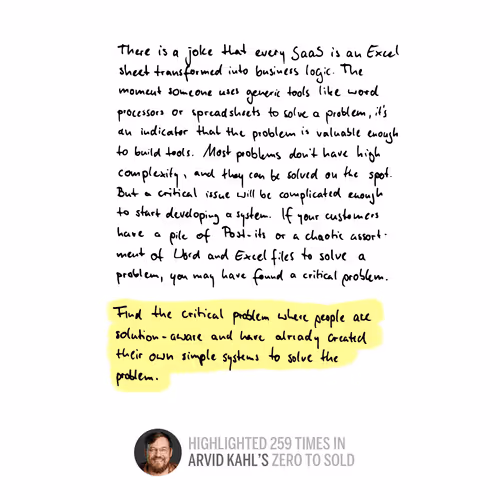 There is a joke that every SaaS is an Excel
sheet transformed into business logic. The
moment someone uses generic tools like word
processors or spreadsheets to solve a problem, it's
an indicator that the problem is valuable enough
to build tools. Most problems don't have high
complexity, and they can be solved on the spot.
But a critical issue will be complicated enough
to start developing a system. If your customers
have a pile of Post-its or a chaotic assort-
ment of Word and Excel files to solve a
problem, you may have found a critical problem.
Find the critical problem where people are
solution-aware and have already created
their own simple systems to solve the
problem.
HIGHLIGHTED 259 TIMES IN
ARVID KAHL'S ZERO TO SOLD